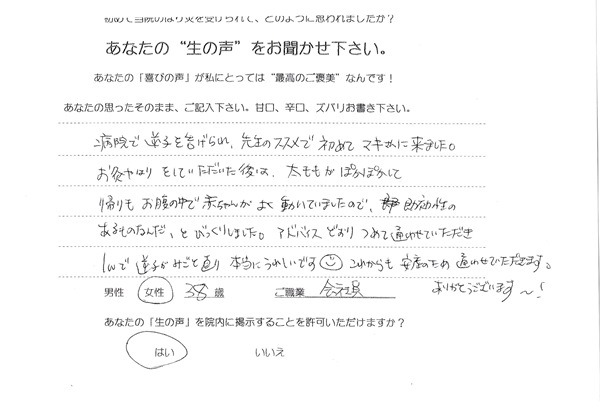 初めて当院のはり灸を受けられて、どのように思われましたか？
あなたの“生の声”をお聞かせ下さい。
あなたの「喜びの声」が私にとっては“最高のご褒美”なんです！
あなたの思ったそのまま、ご記入下さい。甘口、辛口、ズバリお書き下さい。
病院で逆子を告げられ、先生のススメで初めてマキかに来ました。
お灸やはりをしていただいた後は、太ももがぽかぽかして
帰りもお腹の中で赤ちゃんがよく動いていましたので、即効性の
あるものなんだ、とびっくりしました。アドバイスどおりつめて通わせていただき
1wで逆子がみごと直り本当にうれしいです これからも安産のため通わせていただきます。
ありがとうございます～！
男性 女性 38歳 ご職業 会社員
あなたの「生の声」を院内に掲示することを許可いただけますか？
はい いいえ